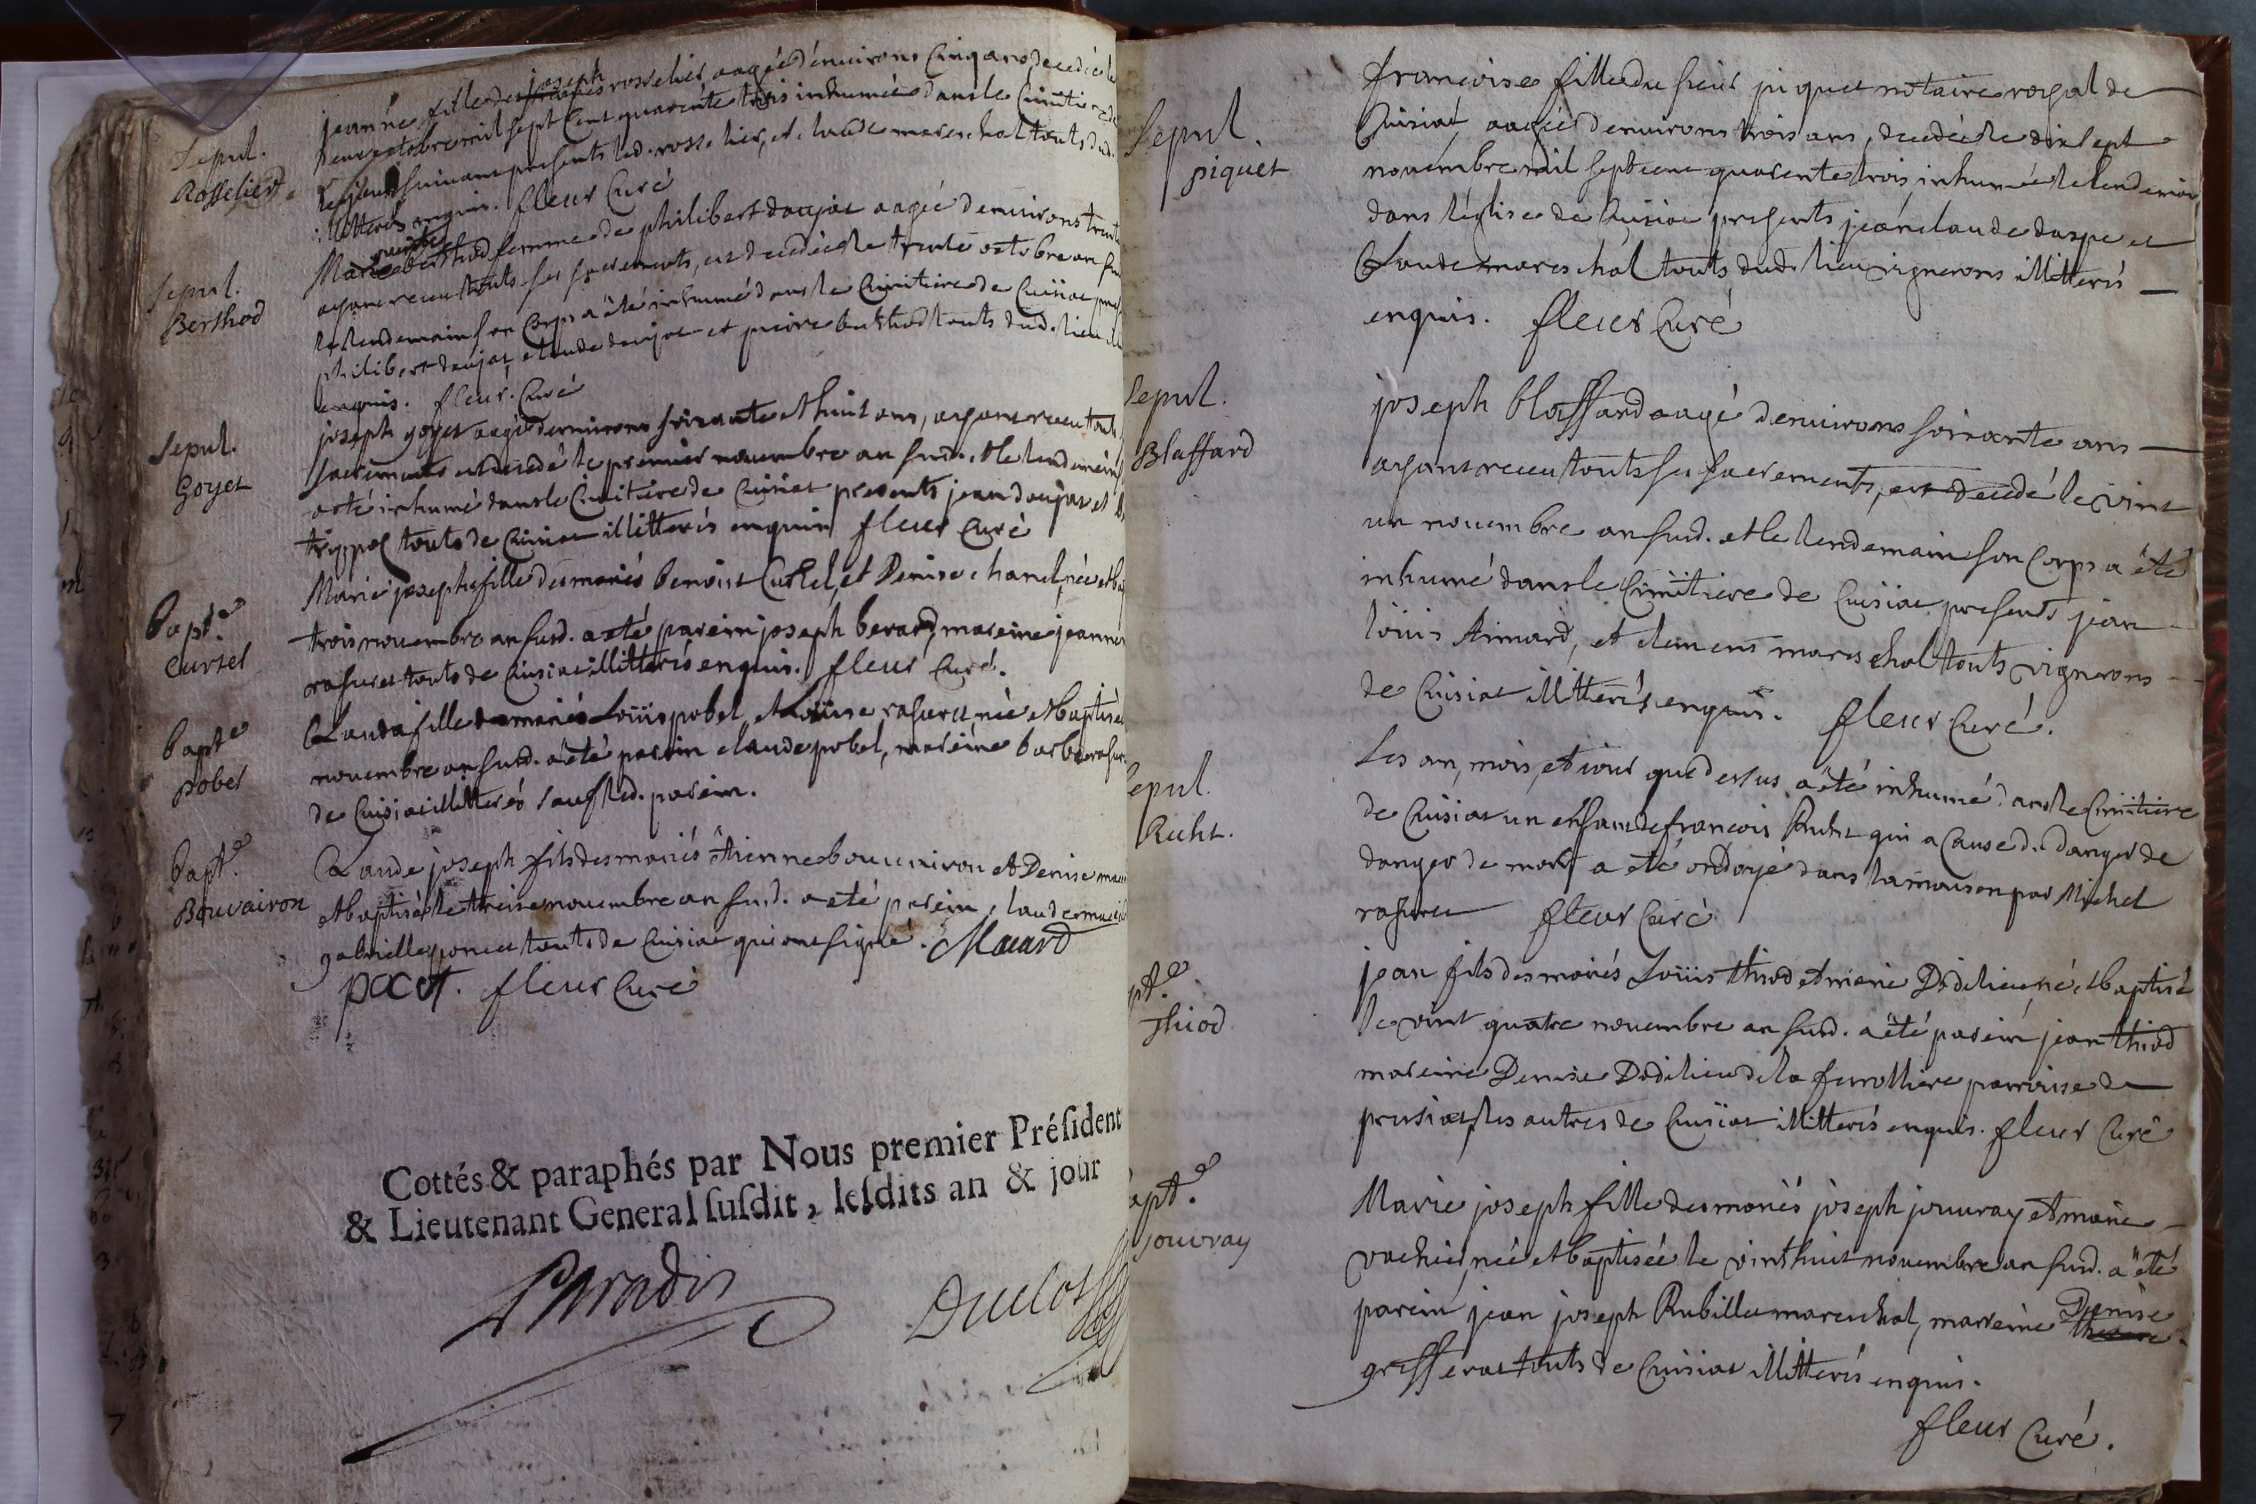 Sepul.
Rosselier
jeanne fille de joseph rosselier aagée d'environs cinq ans decedée le
neuf octobre mil sept cent quarente trois inhumée dans le Cimitiere
le jour suivant presents led. rosselier, et claude mareschal touts dud.
illitterés enquis. fleur Curé
Sepul.
Berthod
Marie berthod femme de philibert doujat aagée d'environs trente
ayant receu touts ses sacrements, est decedée le trente octobre an sud.
le lendemain son Corps a été inhumé dans le Cimitiere de Cuisiat
philibert doujat, claude doujat et pierre berthod touts dud. lieu
enquis. fleur. Curé
Sepul.
Goyet
joseph goyet aagé d'environs soixante et huit ans, ayant receu touts
sacrements est decedé le premier novembre an sud. et le lendemain
a été inhumé dans le Cimitiere de Cuisiat presents jean doujat et
touts de Cuisiat illitterés enquis fleur Curé
Bapt.e
Curtel
Marie josephe fille des mariés benoist Curtel, et Denise chanel, née et
trois novembre an sud. a été parein joseph berard, mareine jeanne
rasurel touts de Cuisiat illitterés enquis. fleur Curé.
Bapt.e
pobel
Clauda fille des mariés Loüis pobel, et Loüise rasurel née et baptisée
novembre an sud. a été parein claude pobel, mareine barbe
de Cuisiat illitterés sauf led. parein.
Bapt.e
Bouvairon
Claude joseph fils des mariés êtienne bouvairon et Denise
et baptisé le treise novembre an sud. a été parein, claude
gabrielle poncet touts de Cuisiat qui ont signé. Macard
pacot. fleur Curé
Cottés & paraphés par Nous premier Président
& Lieutenant General susdit, lesdits an & jour
Paradis Duclos
Sepul.
piquet
françoise fille du sieur piquet notaire royal de
Cuisiat, aagée d'environs trois ans, decedée le dix sept
novembre mil sept cent quarente trois inhumée le lendemain
dans l'église de Cuisiat presents jean claude daspe et
Claude mareschal touts dud. lieu vignerons illitterés
enquis. fleur Curé
Sepul.
Blaffard
joseph blaffard aagé d'environs soixante ans
ayant receu touts ses sacrements, est decedé le vint
un novembre an sud. et le lendemain son Corps a été
inhumé dans le Cimitiere de Cuisiat presents jean
loüis Aimard, et clement mareschal touts vignerons
de Cuisiat illitterés enquis. fleur Curé.
Sepul.
Ruht.
Les an, mois, et jour que dessus a été inhumé dans le Cimitiere
de Cuisiat un enfant de françois Ruht qui a Cause d. danger de
danger de mort a été ondoyé dans la maison par Michel
rasurel fleur Curé
pt.e
Thiod
jean fils des mariés Loüis thiod et marie Dodelieu, né et baptisé
le vint quatre novembre an sud. a été parein jean thiod
mareine Denise Dodelieu de la ferrolliere parroisse de
presiat, les autres de Cuisiat illitterés enquis. fleur Curé
apt.e
jouvray
Marie joseph fille des mariés joseph jouvray et marie
vachier, née et baptisée le vint huit novembre an sud. a été
parein jean joseph Rubillu mareschal, mareine Denise
grefferat touts de Cuisiat illitterés enquis.
fleur Curé.